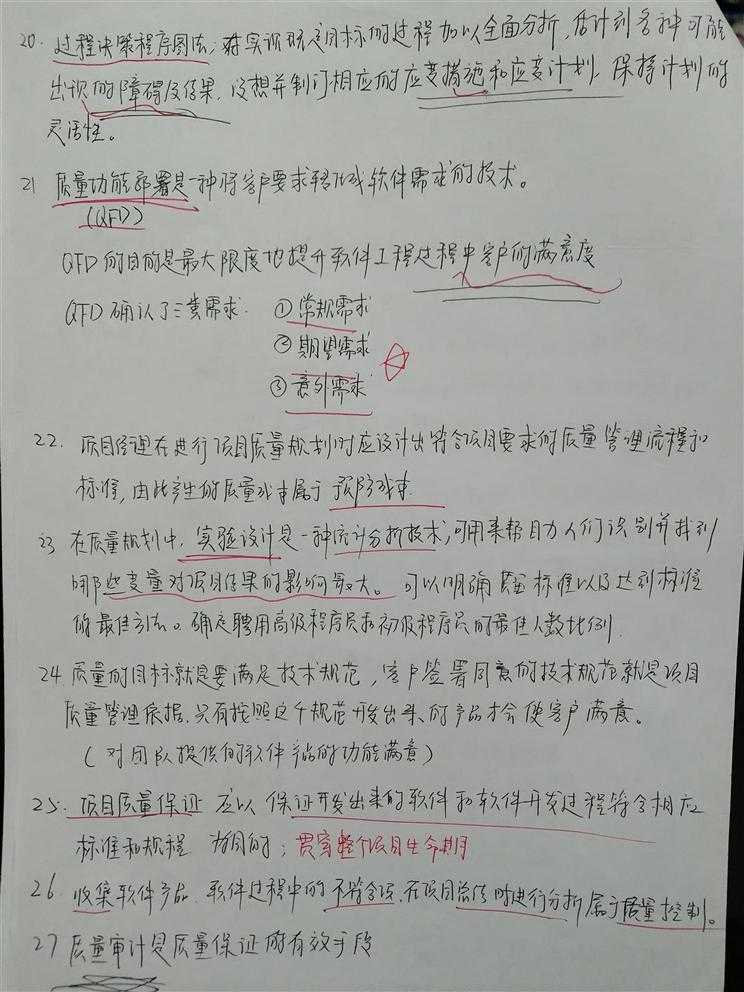 20. 过程决策程序图法,对实现既定目标的过程加以全面分析,估计到各种可能
出现的障碍及结果,设想并制订相应的应变措施和应变计划,保持计划的
灵活性。
21 质量功能部署是一种将客户要求转化成软件需求的技术。
(QFD)
QFD的目的是最大限度地提升软件工程过程中客户的满意度
QFD确认了三类需求. ①常规需求
②期望需求
③意外需求
22. 项目经理在进行项目质量规划时应设计出符合项目要求的质量管理流程和
标准,由此产生的质量成本属于预防成本.
23 在质量规划中,实验设计是一种统计分析技术,可用来帮助人们识别并找到
哪些变量对项目结果的影响最大。可以明确 标准以及达到标准
的最佳方法。确定聘用高级程序员和初级程序员的最佳人数比例.
24. 质量的目标就是要满足技术规范,客户签署同意的技术规范就是项目
质量管理依据.只有按照这个规范开发出来的产品才会使客户满意。
(对团队提供的软件产品的功能满意)
25. 项目质量保证 应以 保证开发出来的软件和软件开发过程符合相应
标准和规程 为目的;贯穿整个项目生命期
26. 收集软件产品、软件过程中的不符合项,在项目总结时进行分析属于质量控制。
27 质量审计是质量保证的有效手段